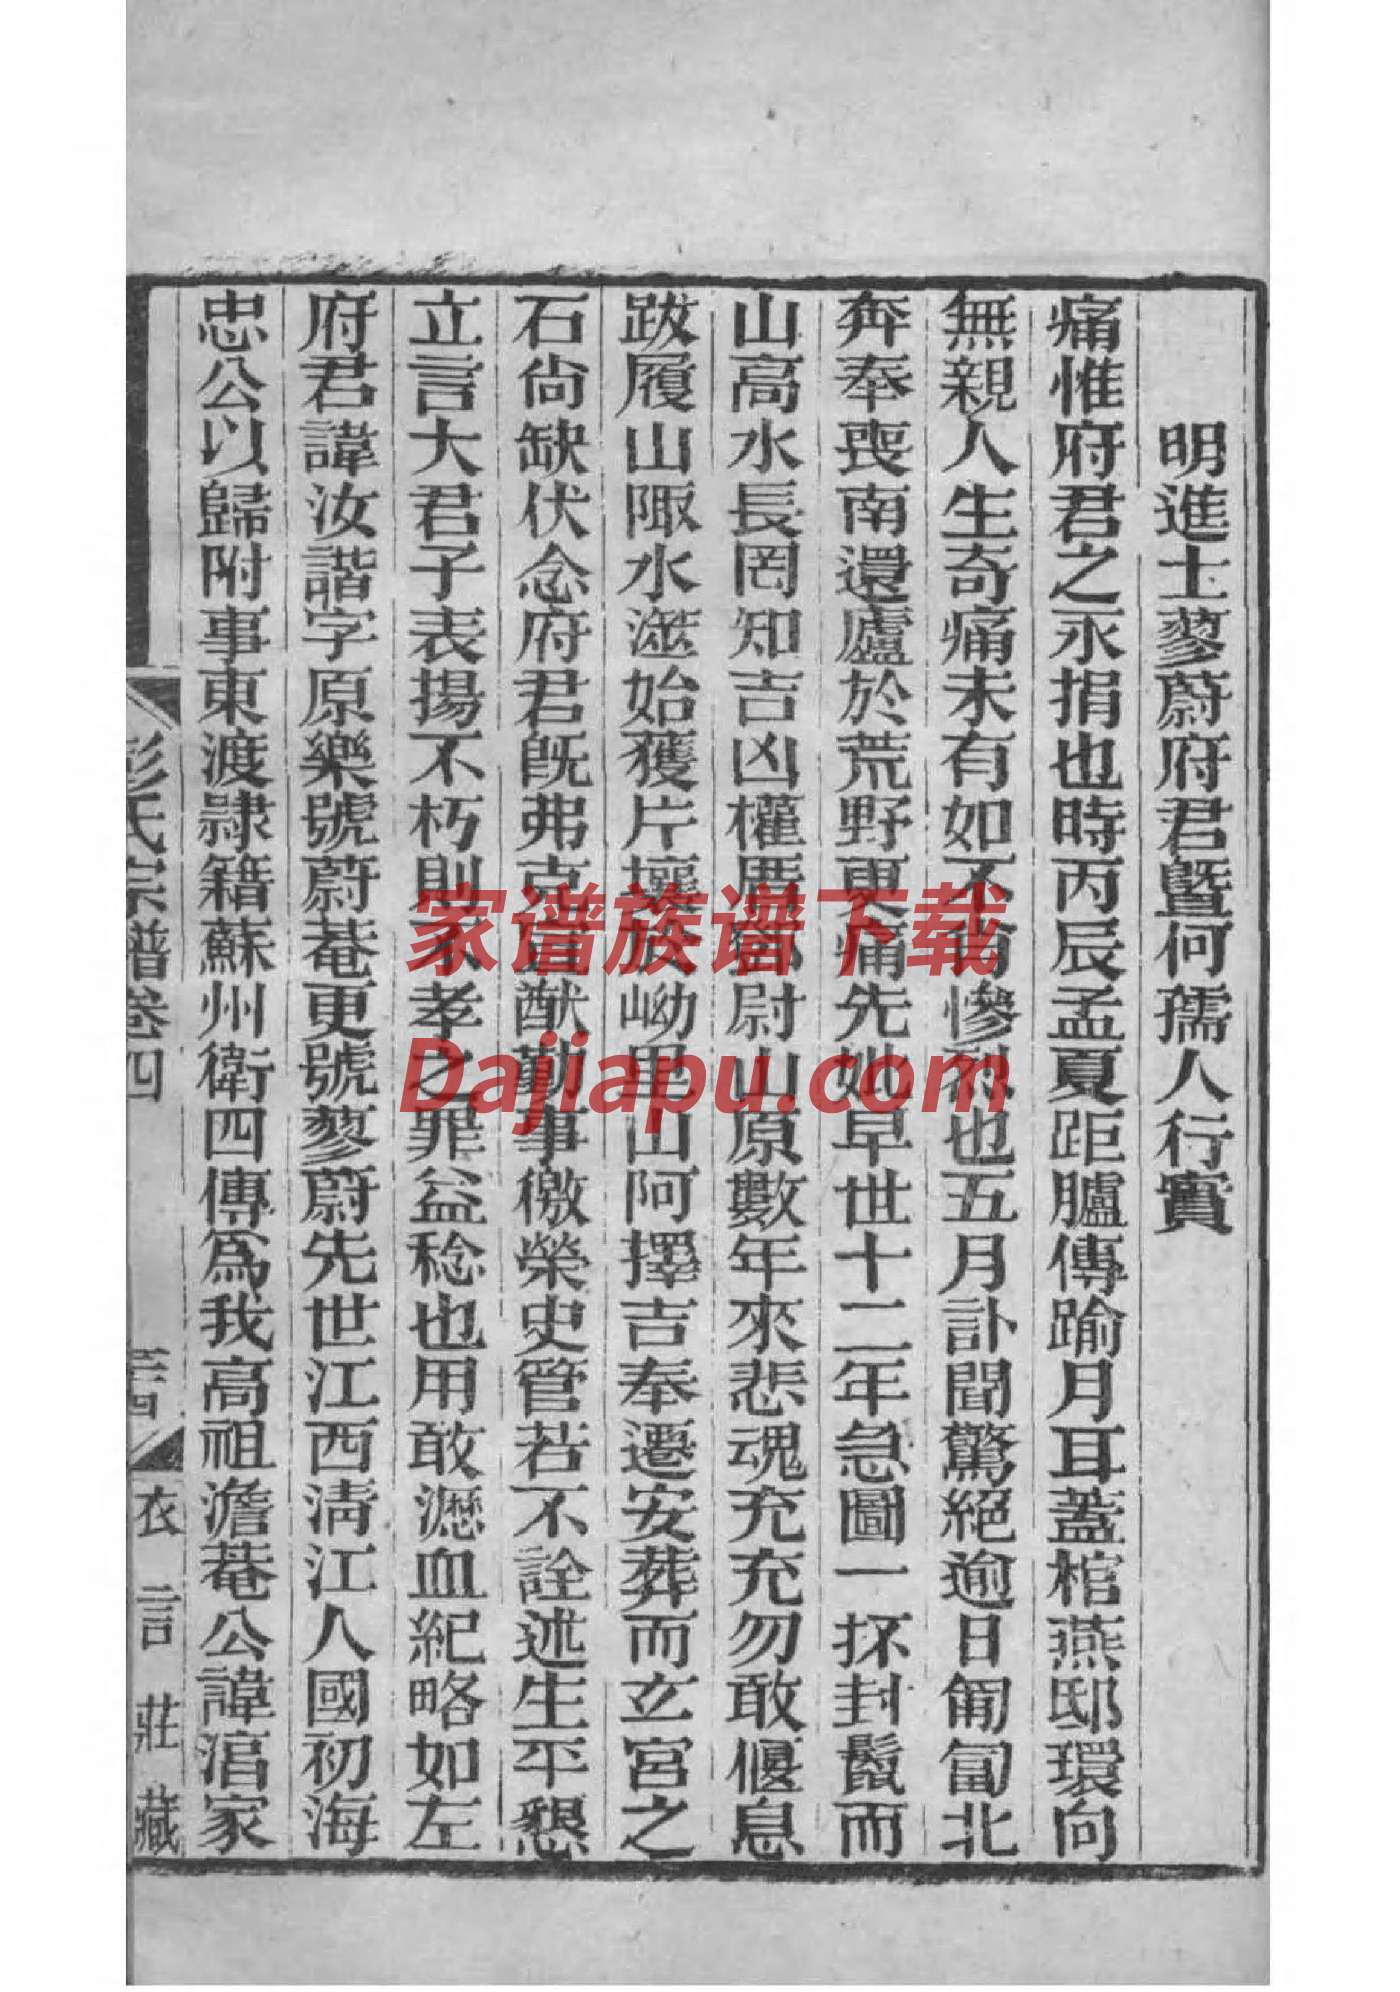 明進士蓼蔚府君曁何孺人行實
痛惟府君之永捐也時丙辰孟夏距臚傳踰月耳蓋棺燕邸環向
無親人生奇痛未有如不肖慘烈也五月訃聞驚絕逾日匍匐北
奔奉喪南還廬於荒野更痛先妣早世十二年急圖一抔封鬣而
山高水長罔知吉凶權厝鄧尉山原數年來悲魂充充勿敢偃息
跋履山陬水澨始獲片壤於㘭里山阿擇吉奉遷安葬而立宮之
石尙缺伏念府君旣弗克宣猷勤事徼榮史管若不詮述生平懇
立言大君子表揚不朽則不孝之罪益稔也用敢瀝血紀略如左
府君諱汝諧字原樂號蔚菴更號蓼蔚先世江西淸江人國初海
忠公以歸附事東渡隷籍蘇州衛四傳爲我高祖澹菴公諱涫家
彭氏宗譜卷四
衣言莊藏
家谱族谱下载
Dajiapu.com